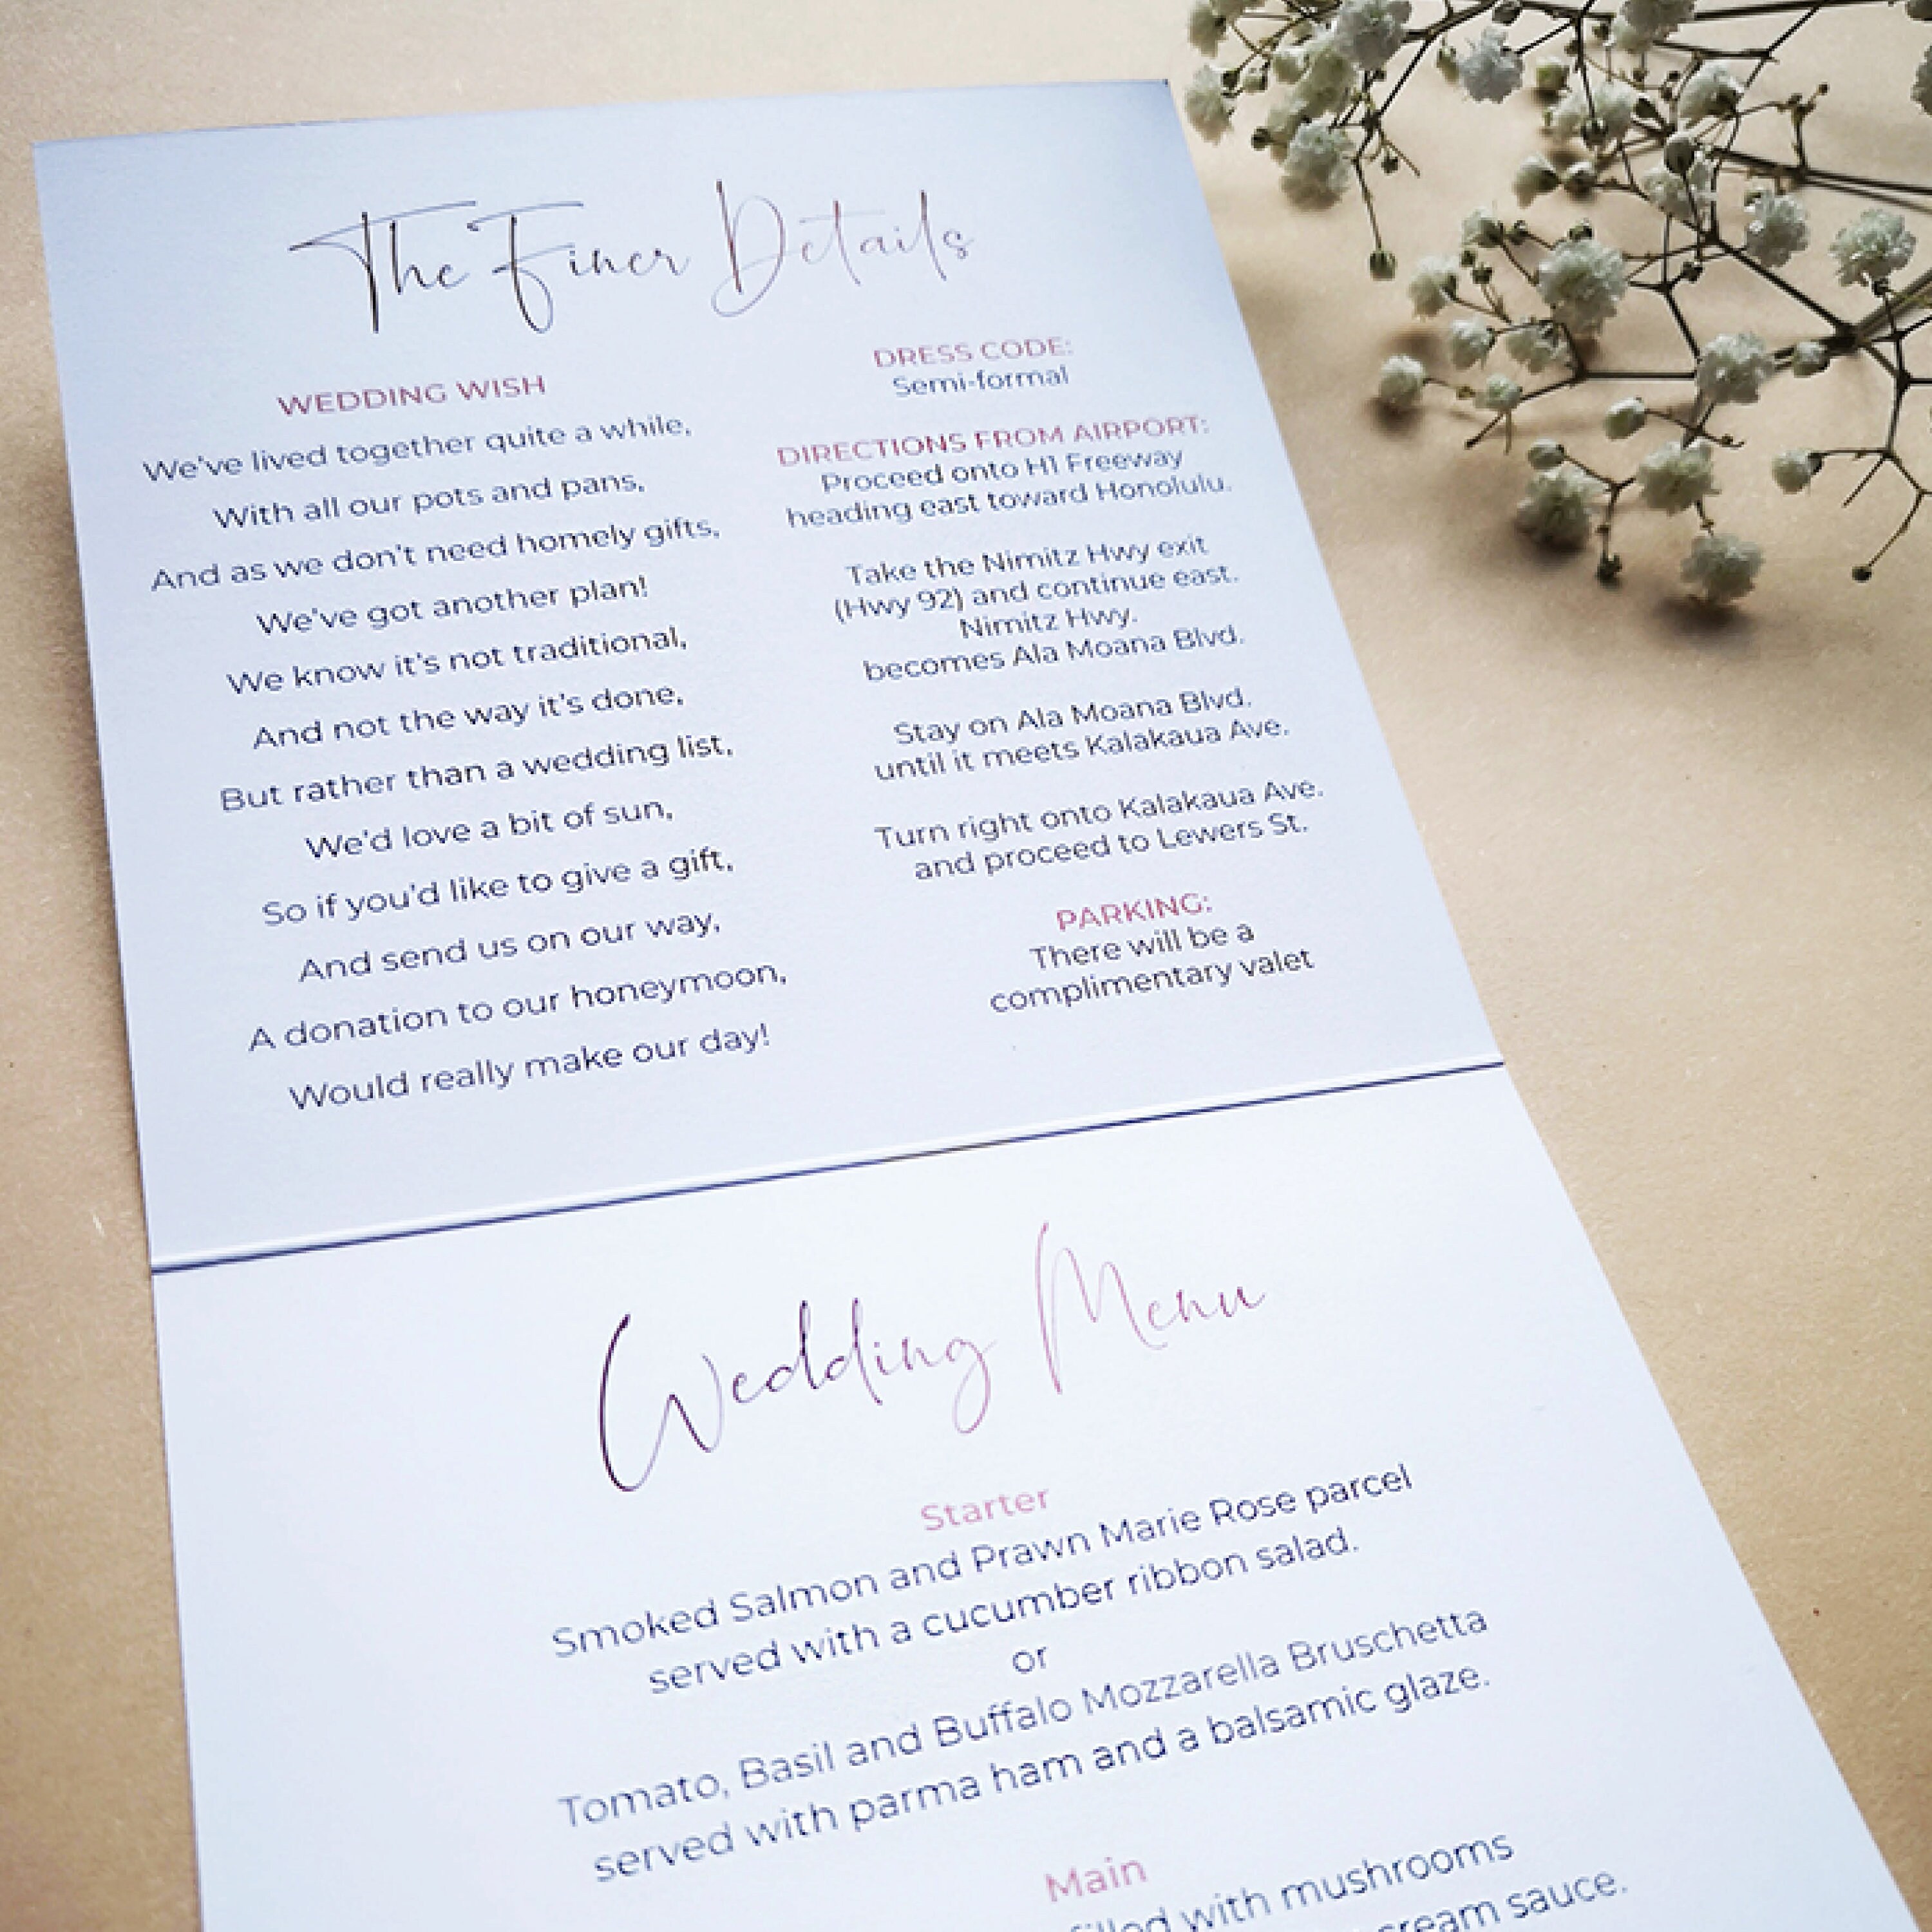 The Finer Details
WEDDING WISH
We've lived together quite a while,
With all our pots and pans,
And as we don't need homely gifts,
We've got another plan!
We know it's not traditional,
And not the way it's done,
But rather than a wedding list,
We'd love a bit of sun,
So if you'd like to give a gift,
And send us on our way,
A donation to our honeymoon,
Would really make our day!
DRESS CODE:
Semi-formal
DIRECTIONS FROM AIRPORT:
Proceed onto H1 Freeway
heading east toward Honolulu.
Take the Nimitz Hwy exit
(Hwy 92) and continue east.
Nimitz Hwy.
becomes Ala Moana Blvd.
Stay on Ala Moana Blvd.
until it meets Kalakaua Ave.
Turn right onto Kalakaua Ave.
and proceed to Lewers St.
PARKING:
There will be a
complimentary valet
Wedding Menu
Starter
Smoked Salmon and Prawn Marie Rose parcel
served with a cucumber ribbon salad.
or
Tomato, Basil and Buffalo Mozzarella Bruschetta
served with parma ham and a balsamic glaze.
Main
filled with mushrooms
cream sauce.